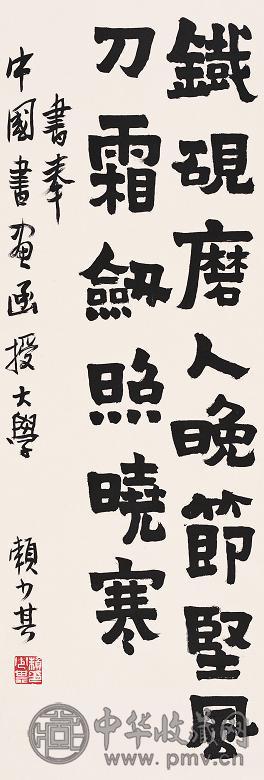 鐵硯磨人晚節堅風
刀霜劒照曉寒
書奉
中國書画函授大學
賴少其
中华收藏网
www.pmv.cn